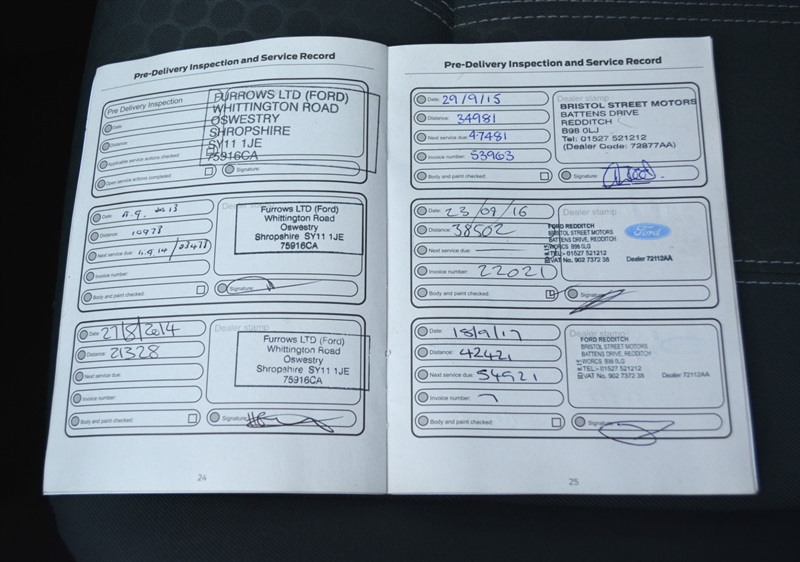 Pre-Delivery Inspection and Service Record
Pre Delivery Inspection
Date:
Distance:
Applicable service actions checked:
Open service actions completed:
FURROWS LTD (FORD)
WHITTINGTON ROAD
OSWESTRY
SHROPSHIRE
SY11 1JE
75916CA
Signature:
Date:
Distance: 10978
Next service due:
Invoice number:
Body and paint checked:
Dealer stamp
Furrows LTD (Ford)
Whittington Road
Oswestry
Shropshire SY11 1JE
75916CA
Signature:
Date: 27/8/2014
Distance: 21328
Next service due:
Invoice number:
Body and paint checked:
Dealer stamp
Furrows LTD (Ford)
Whittington Road
Oswestry
Shropshire SY11 1JE
75916CA
Signature:
24
Pre-Delivery Inspection and Service Record
Date: 29/9/15
Distance: 34981
Next service due: 47481
Invoice number: 53963
Body and paint checked:
Dealer stamp
BRISTOL STREET MOTORS
BATTENS DRIVE
REDDITCH
B98 0LJ
Tel: 01527 521212
(Dealer Code: 72877AA)
Signature:
Date: 23/09/16
Distance: 38502
Next service due:
Invoice number: 22021
Body and paint checked:
Dealer stamp
FORD REDDITCH
BRISTOL STREET MOTORS
BATTENS DRIVE, REDDITCH
WORCS B98 0LG
TEL:- 01527 521212
VAT No. 902 7372 38
Ford
Dealer 72112AA
Signature:
Date: 18/9/17
Distance: 42421
Next service due: 54921
Invoice number:
Body and paint checked:
Dealer stamp
FORD REDDITCH
BRISTOL STREET MOTORS
BATTENS DRIVE, REDDITCH
WORCS B98 0LG
TEL:- 01527 521212
VAT No. 902 7372 38
Dealer 72112AA
Signature:
25